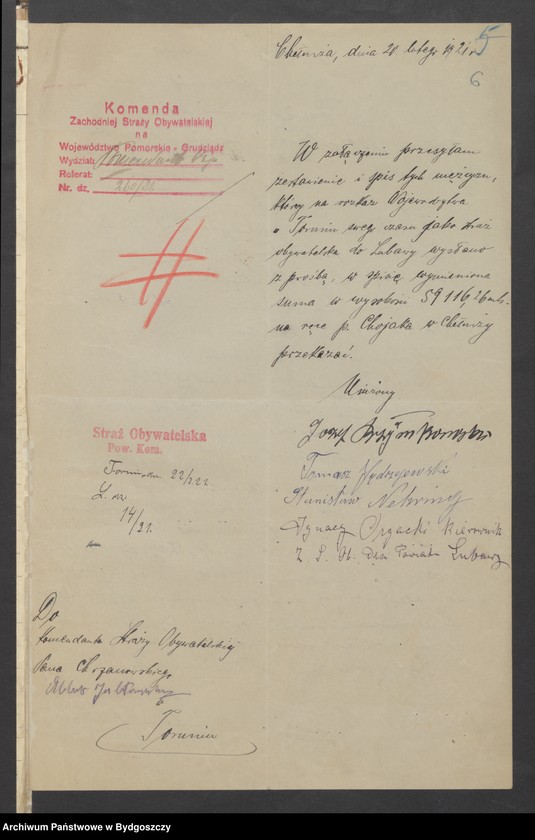 Chełmża, dnia 20 lutego 1921 r.
5
6
Komenda
Zachodniej Straży Obywatelskiej
na
Województwo Pomorskie - Grudziądz
Wydział:
Referat:
Nr. dz. 260/21
W załączeniu przesyłam
zestawienie i spis tych mężczyzn,
którzy na rozkaz Wojewódstwa
w Toruniu swego czasu jako straż
obywatelska do Lubawy wysłano
z prośbą, w spisie wymieniona
suma w wysokości 59116,26 mk.
na ręce p. Chojaka w Chełmży
przekazać.
Uniżony
Józef
Tomasz Wydrzejewski
Stanisław Nehring
Ignacy Kierownik
Z. S. Ob. Powiatu Lubawy
Straż Obywatelska
Pow. Kom.
Toruń 22/2 21
L. dz
14/21.
Do
Komendanta Straży Obywatelskiej
Pana Chrzanowskiego
Toruniu
Archiwum Państwowe w Bydgoszczy